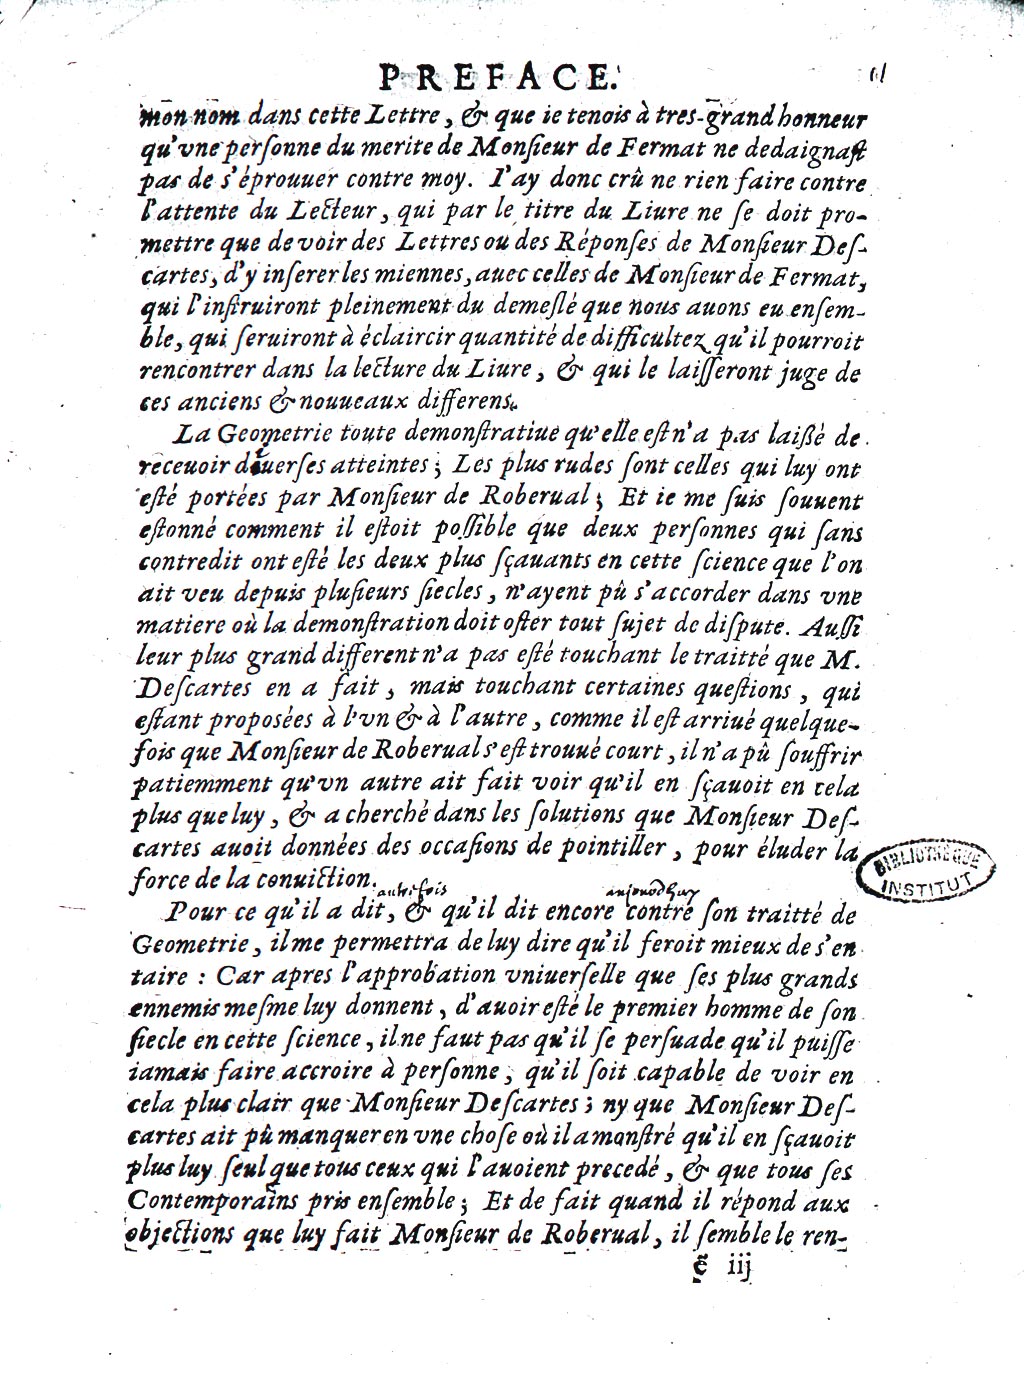 PREFACE.
mon nom dans cette Lettre, & que ie tenois à tres-grand honneur
qu'vne perſonne du merite de Monſieur de Fermat ne dedaignaſt
pas de s'éprouuer contre moy. I'ay donc crû ne rien faire contre
l'attente du Lecteur, qui par le titre du Liure ne ſe doit pro-
mettre que de voir des Lettres ou des Réponſes de Monſieur Deſ-
cartes, d'y inſerer les miennes, auec celles de Monſieur de Fermat,
qui l'inſtruiront pleinement du demeſlé que nous auons eu enſem-
ble, qui ſeruiront à éclaircir quantité de difficultez qu'il pourroit
rencontrer dans la lecture du Liure, & qui le laiſſeront juge de
ces anciens & nouueaux differens.
La Geometrie toute demonſtratiue qu'elle eſt n'a pas laißé de
receuoir diuerſes atteintes; Les plus rudes ſont celles qui luy ont
eſté portées par Monſieur de Roberual; Et ie me ſuis ſouuent
eſtonné comment il eſtoit poſſible que deux perſonnes qui ſans
contredit ont eſté les deux plus ſçauants en cette ſcience que l'on
ait veu depuis pluſieurs ſiecles, n'ayent pû s'accorder dans vne
matiere où la demonſtration doit oſter tout ſujet de diſpute. Auſſi
leur plus grand different n'a pas eſté touchant le traitté que M.
Deſcartes en a fait, mais touchant certaines queſtions, qui
eſtant propoſées à l'vn & à l'autre, comme il eſt arriué quelque-
fois que Monſieur de Roberual s'eſt trouué court, il n'a pû ſouffrir
patiemment qu'vn autre ait fait voir qu'il en ſçauoit en cela
plus que luy, & a cherché dans les ſolutions que Monſieur Deſ-
cartes auoit données des occaſions de pointiller, pour éluder la
force de la conuiction.
BIBLIOTHÈQUE
INSTITUT
autrefois aujourdhuy
Pour ce qu'il a dit, & qu'il dit encore contre ſon traitté de
Geometrie, il me permettra de luy dire qu'il feroit mieux de s'en
taire : Car apres l'approbation vniuerſelle que ſes plus grands
ennemis meſme luy donnent, d'auoir eſté le premier homme de ſon
ſiecle en cette ſcience, il ne faut pas qu'il ſe perſuade qu'il puiſſe
iamais faire accroire à perſonne, qu'il ſoit capable de voir en
cela plus clair que Monſieur Deſcartes; ny que Monſieur Deſ-
cartes ait pû manquer en vne choſe où il a monſtré qu'il en ſçauoit
plus luy ſeul que tous ceux qui l'auoient precedé, & que tous ſes
Contemporains pris enſemble; Et de fait quand il répond aux
objections que luy fait Monſieur de Roberual, il ſemble le ren-
ẽ iij